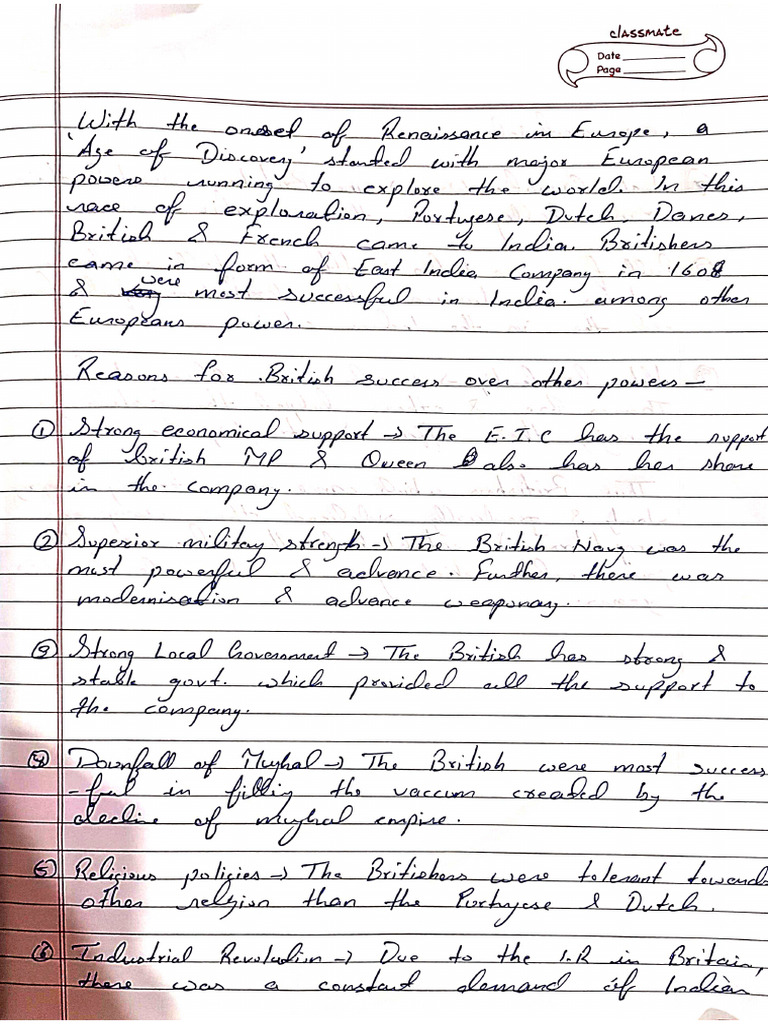 classmate
Date
Page
With the onset of Renaissance in Europe, a
'Age of Discovery' started with major European
powers running to explore the world. In this
race of exploration, Portugese, Dutch, Danes,
British & French came to India. Britishers
came in form of East India Company in 1608
& were most successful in India. among other
Europeans power.
Reasons for British success over other powers –
① Strong economical support → The E.I.C has the support
of british MP & Queen also has her share
in the company.
② Superior military strength → The British Navy was the
most powerful & advance. Further, there was
modernisation & advance weaponary.
③ Strong Local Government → The British has strong &
stable govt. which provided all the support to
the company.
④ Downfall of Mughal → The British were most success
-ful in fillig the vaccum created by the
decline of mughal empire.
⑤ Religious policies → The Britishers were tolerant towards
other religion than the Portugese & Dutch.
⑥ Industrial Revolution → Due to the I.R in Britain,
there was a constant demand of Indian